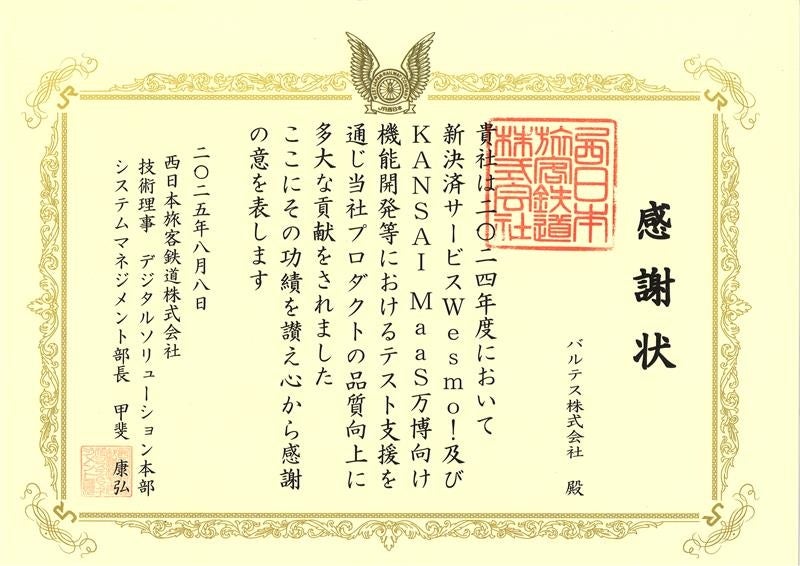 感謝状
バルテス株式会社 殿
貴社は二〇二四年度において
新決済サービスWesmo!及び
KANSAI MaaS万博向け
機能開発等におけるテスト支援を
通じ当社プロダクトの品質向上に
多大な貢献をされました
ここにその功績を讃え心から感謝
の意を表します
二〇二五年八月八日
西日本旅客鉄道株式会社
技術理事 デジタルソリューション本部
システムマネジメント部長 甲斐 康弘
西日本
旅客鉄道
株式会社
JR西日本
JR
JR
JR
JR